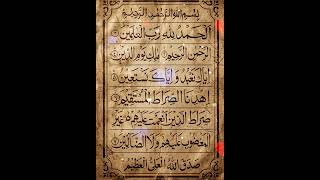 بِسْمِ اللهِ الرَّحْمٰنِ الرَّحِيْمِ
اَلْحَمْدُ لِلّٰهِ رَبِّ الْعٰلَمِيْنَ
الرَّحْمٰنِ الرَّحِيْمِ مٰلِكِ يَوْمِ الدِّيْنِ
اِيَّاكَ نَعْبُدُ وَاِيَّاكَ نَسْتَعِيْنُ
اِهْدِنَا الصِّرَاطَ الْمُسْتَقِيْمَ
صِرَاطَ الَّذِيْنَ اَنْعَمْتَ عَلَيْهِمْ غَيْرِ
الْمَغْضُوْبِ عَلَيْهِمْ وَلَا الضَّآلِّيْنَ
صَدَقَ اللهُ الْعَلِيُّ الْعَظِيْمُ